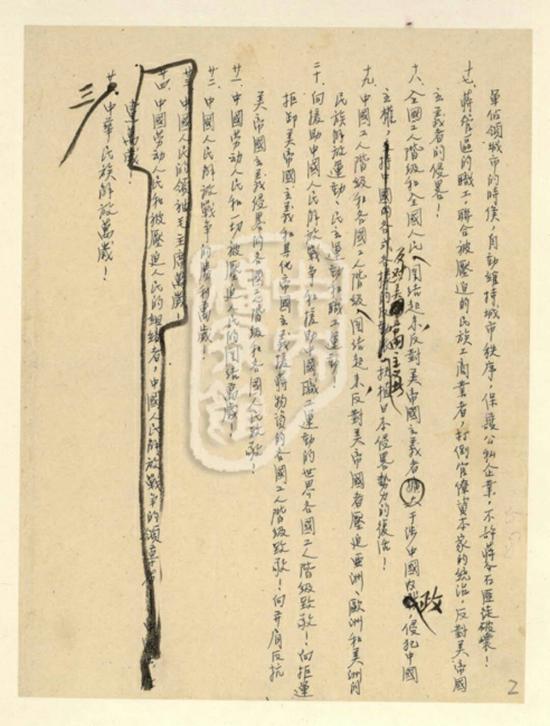 軍佔領城市的時候，自動維持城市秩序，保護公私企業，不許蔣介石匪徒破壞！
十七、蔣管區的職工，聯合被壓迫的民族工商業者，打倒官僚資本家的統治，反對美帝國
主義者的侵略！
十八、全國工人階級和全國人民，團結起來，反對美帝國主義者干涉中國內政，侵犯中國
主權，反對美帝國主義扶植日本侵略勢力的復活！
十九、中國工人階級和各國工人階級，團結起來，反對美帝國者壓迫亞洲、歐洲和美洲的
民族解放運動、民主運動和職工運動！
二十、向援助中國人民解放戰爭和援助中國職工運動的世界各國工人階級致敬！向拒運
拒卸美帝國主義和其他帝國主義援蔣物資的各國工人階級致敬！向并肩反抗
美帝國主義侵略的各國工人階級和各國人民致敬！
廿一、中國勞动人民和一切被壓迫人民的團結萬歲！
廿二、中國人民解放戰爭的勝利萬歲！
廿三、中國人民的領袖毛主席萬歲！
廿四、中國勞动人民和被壓迫人民的組織者，中國人民解放戰爭的領導
萬歲！
三
中華民族解放萬歲！
2